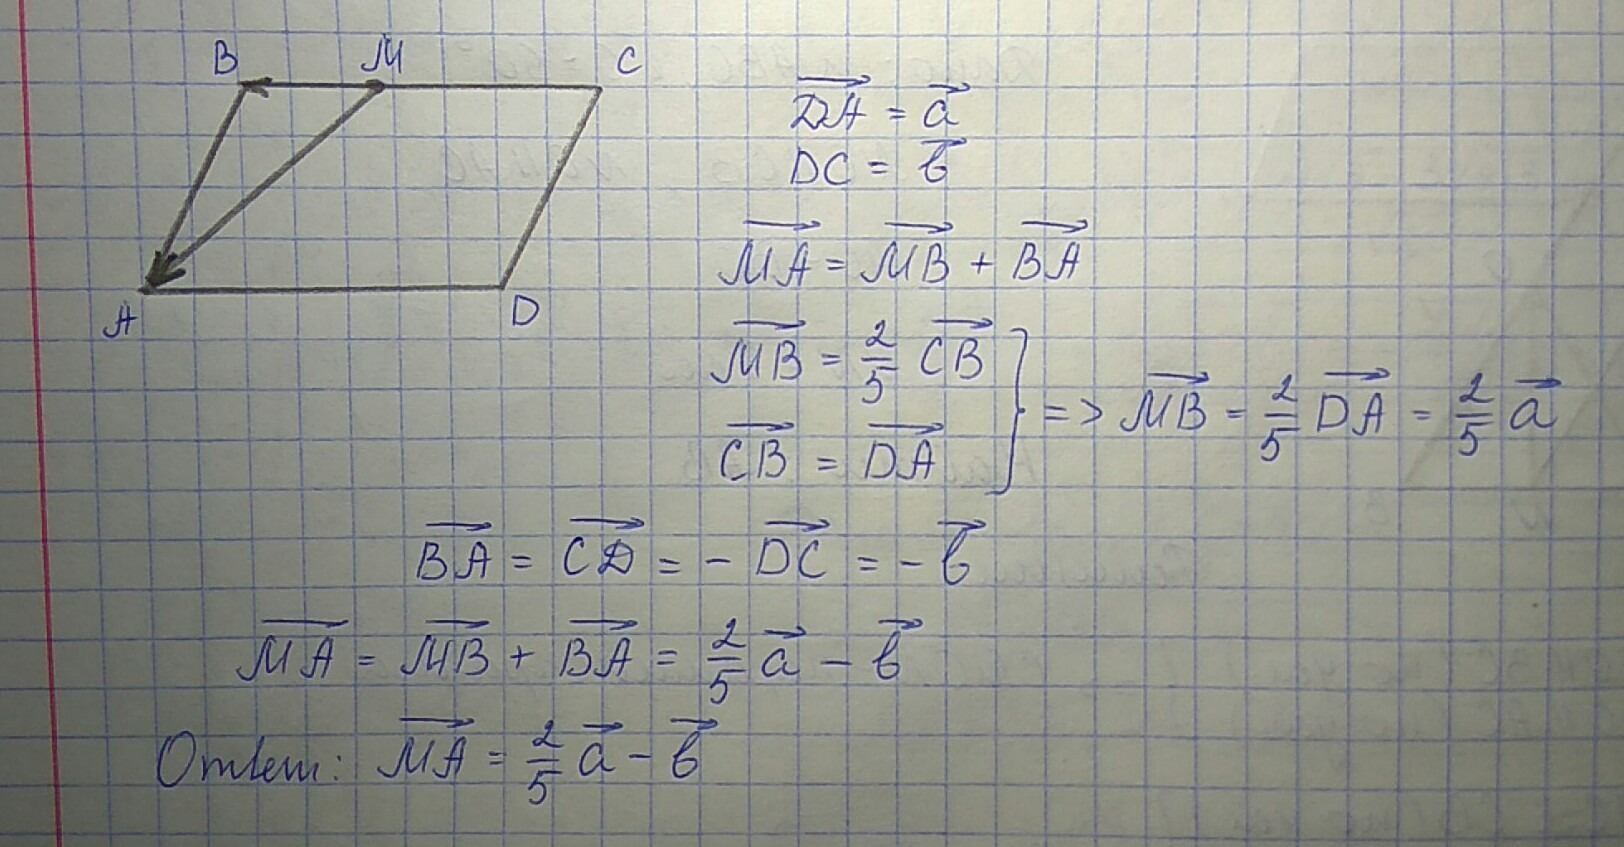 B M C
A D
$\overrightarrow{DA} = \vec{a}$
$DC = \vec{b}$
$\overrightarrow{MA} = \overrightarrow{MB} + \overrightarrow{BA}$
$\left.\begin{array}{l}\overrightarrow{MB} = \frac{2}{5}\overrightarrow{CB} \\ \overrightarrow{CB} = \overrightarrow{DA}\end{array}\right\} => \overrightarrow{MB} = \frac{2}{5}\overrightarrow{DA} = \frac{2}{5}\vec{a}$
$\overrightarrow{BA} = \overrightarrow{CD} = -\overrightarrow{DC} = -\vec{b}$
$\overrightarrow{MA} = \overrightarrow{MB} + \overrightarrow{BA} = \frac{2}{5}\vec{a} - \vec{b}$
Ответ: $\overrightarrow{MA} = \frac{2}{5}\vec{a} - \vec{b}$